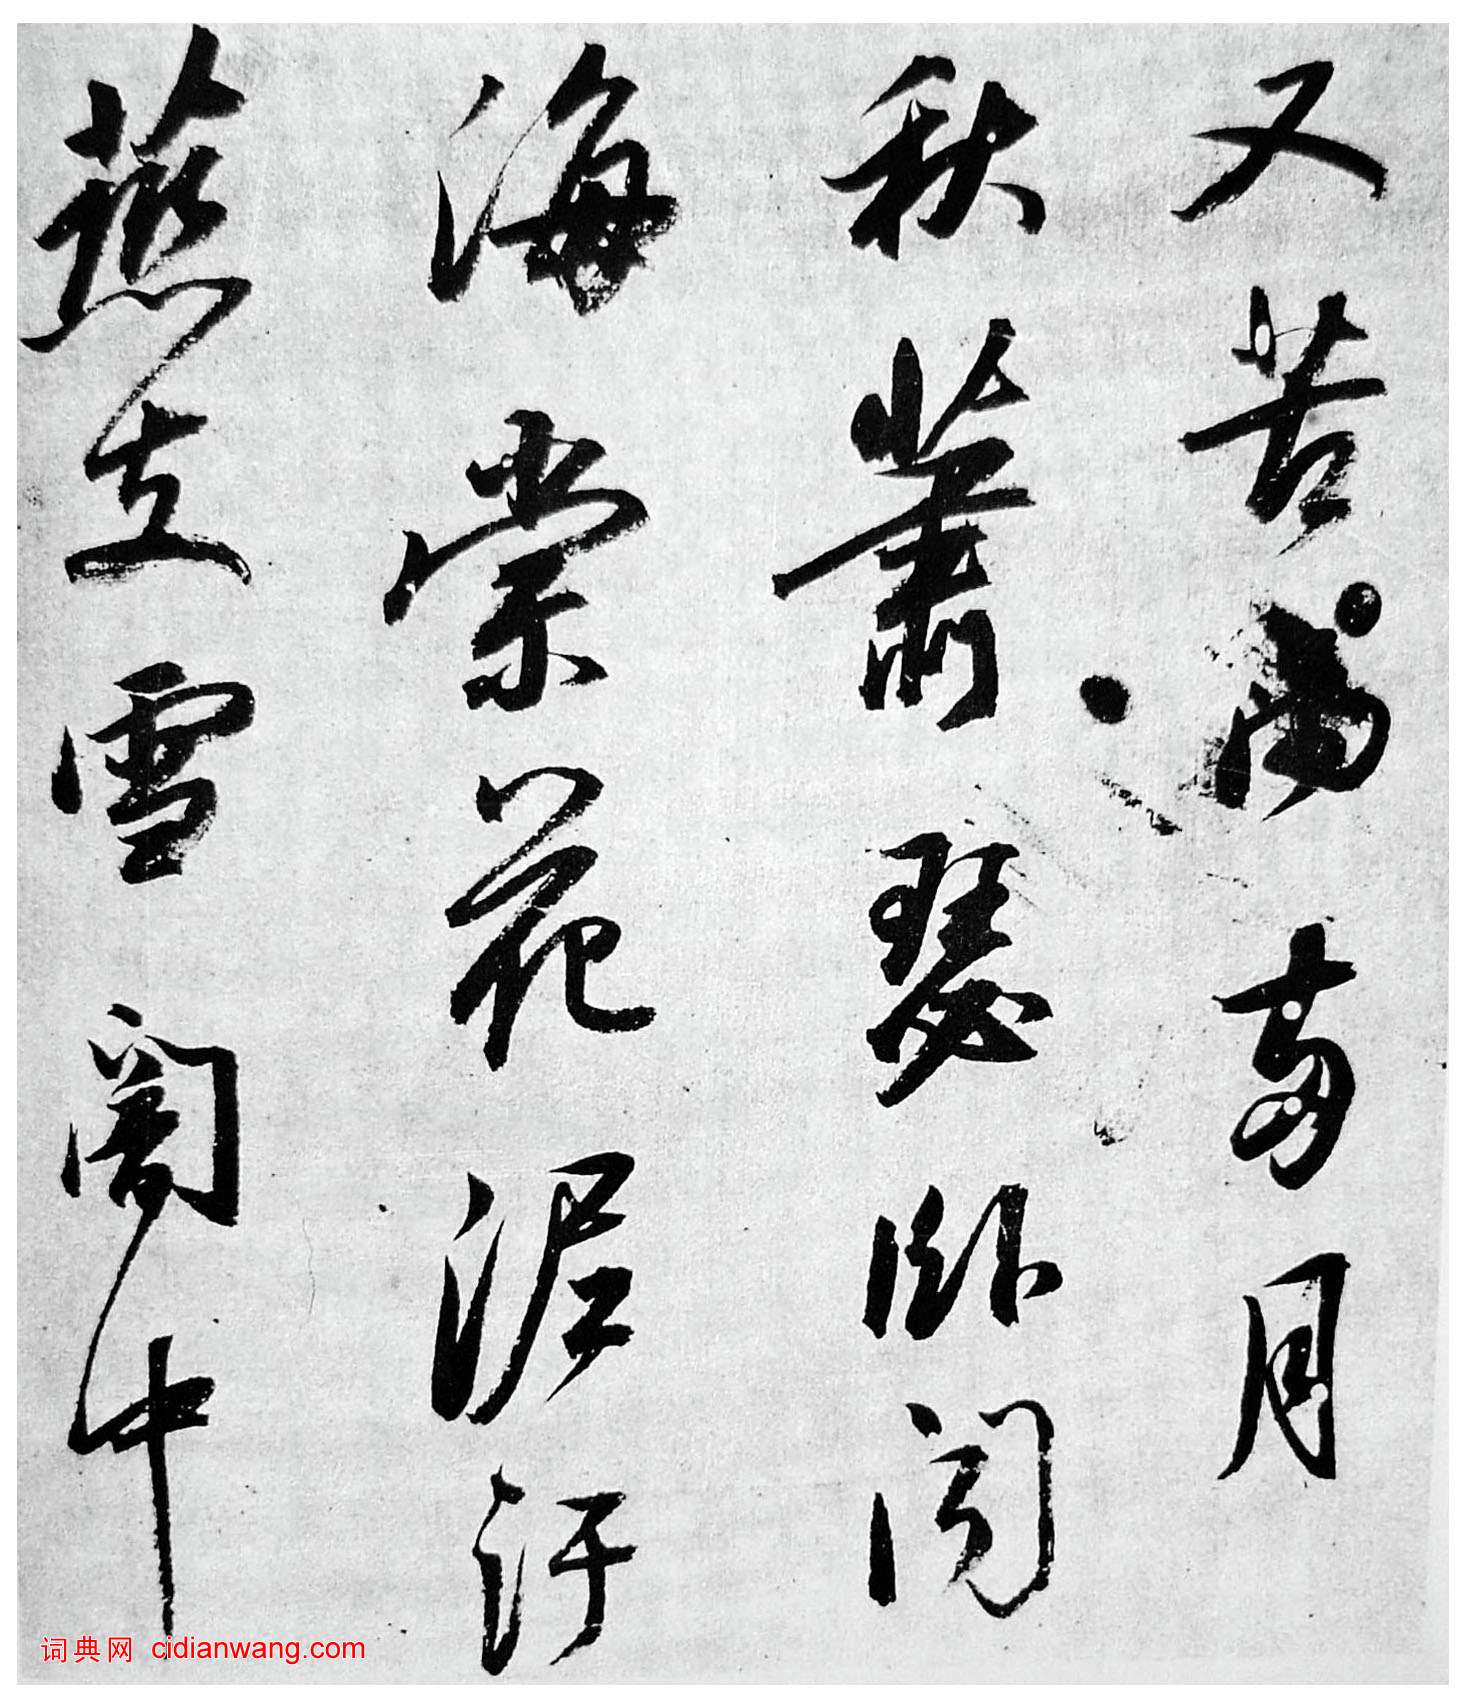 又苦雨兩月
秋蕭瑟卧聞
海棠花泥汙
燕支雪闇中
词典网 cidianwang.com